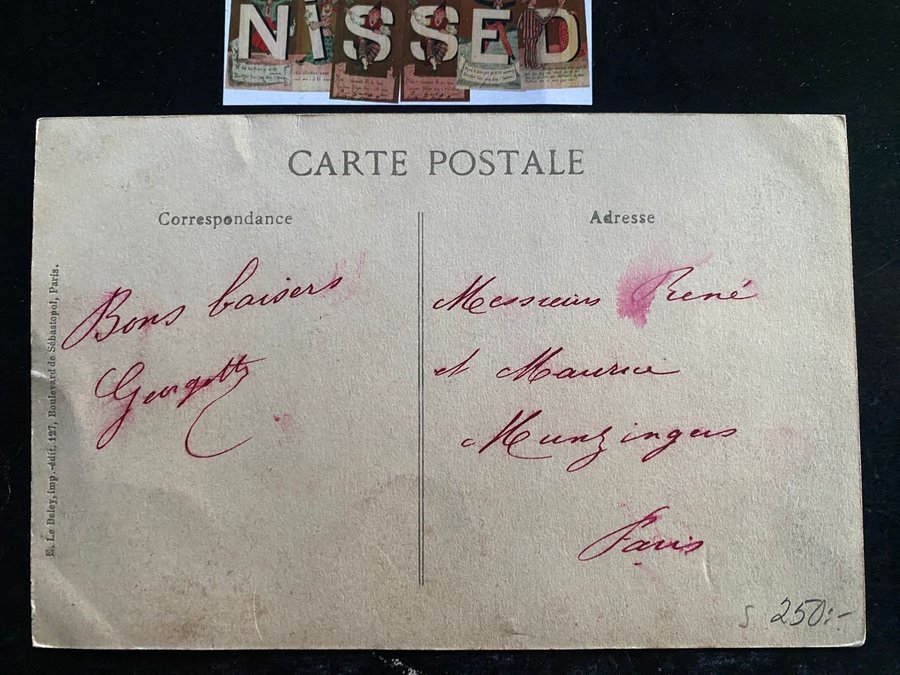 NISSED
CARTE POSTALE
Correspondance
Adresse
Bons baisers
Georgette
Messieurs René
et Maurice
Munzingers
Paris
E. Le Deley, imp.-édit. 127, Boulevard de Sébastopol, Paris.
S 250:-